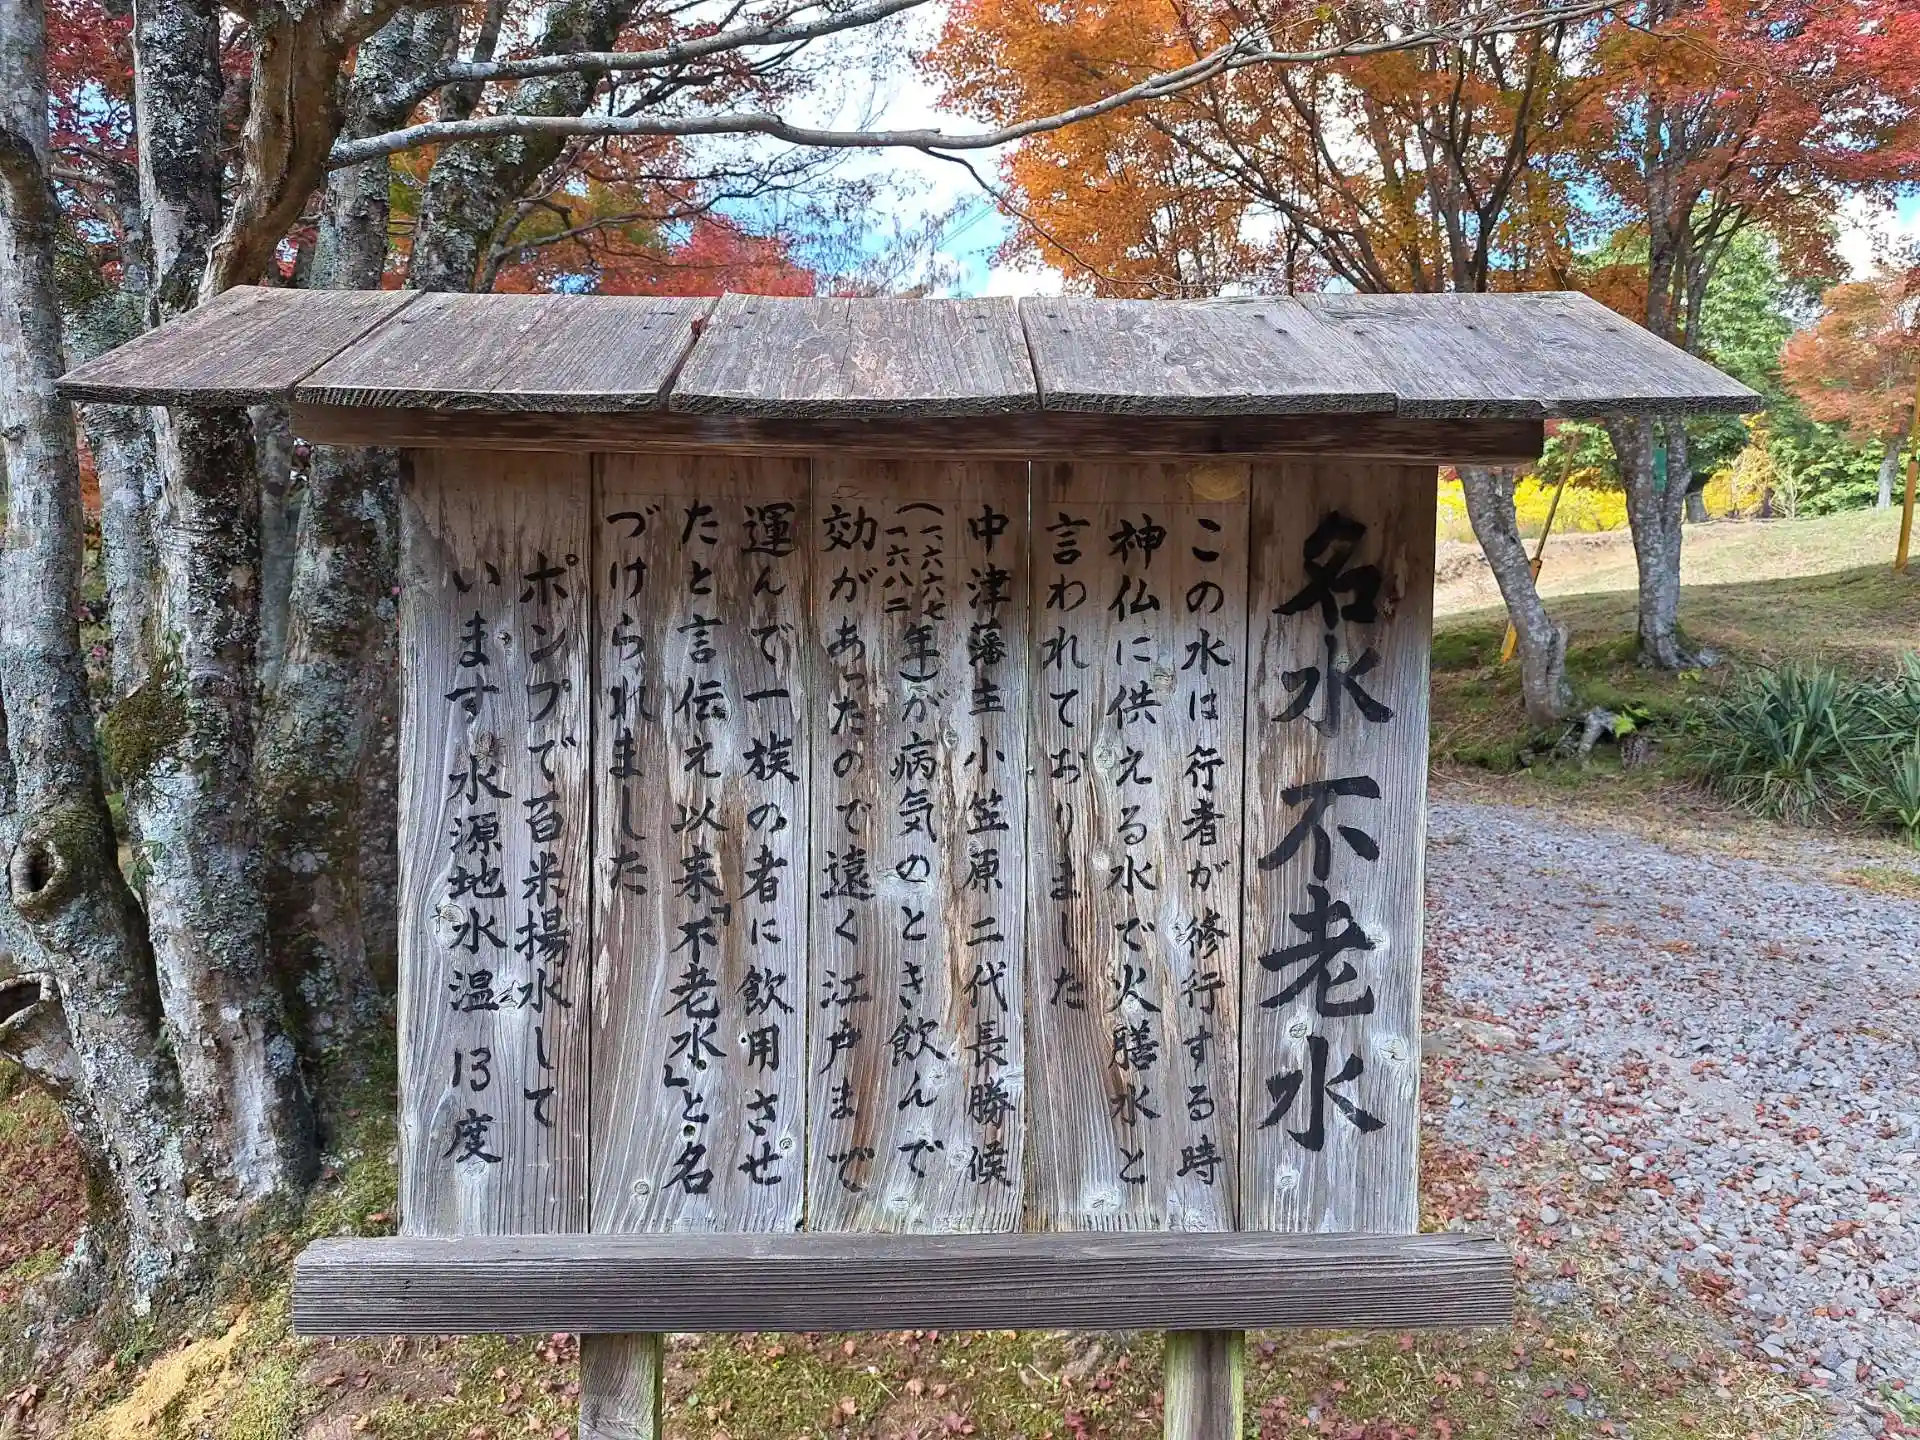 名水不老水
この水は行者が修行する時
神仏に供える水で火膳水と
言われておりました
中津藩主小笠原二代長勝候
(一、六六七
一六八二年)が病気のとき飲んで
効があったので遠く江戸まで
運んで一族の者に飲用させ
たと言伝え以来「不老水」と名
づけられました
ポンプで百米揚水して
います水源地水温 13度